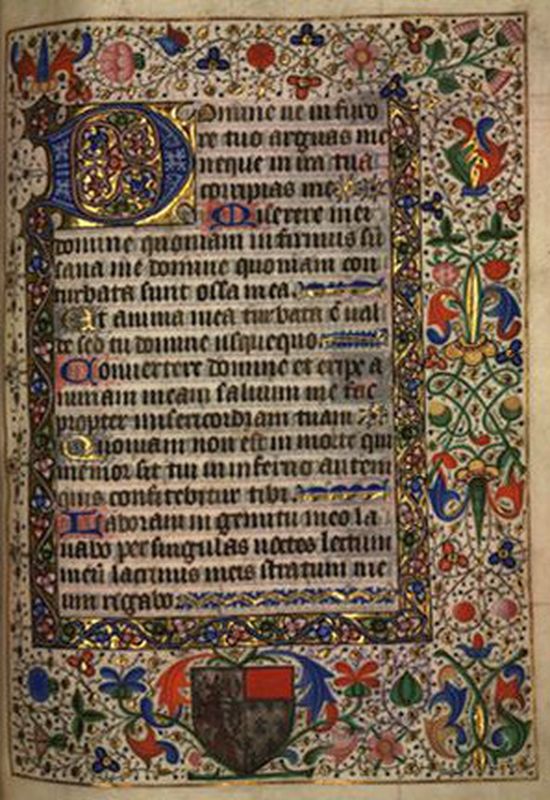 Domine ne in furo
re tuo arguas me
neque in ira tua
corripias me
Miserere mei
domine quoniam infirmus su
sana me domine quoniam con
turbata sunt ossa mea.
Et anima mea turbata e ual
de sed tu domine usquequo.
Conuertere domine et eripe a
nimam meam saluum me fac
propter misericordiam tuam
Quoniam non est in morte qui
memor sit tui in inferno autem
quis confitebitur tibi.
Laboraui in gemitu meo la
uabo per singulas noctes lectum
meū lacrimis meis stratum me
um rigabo.